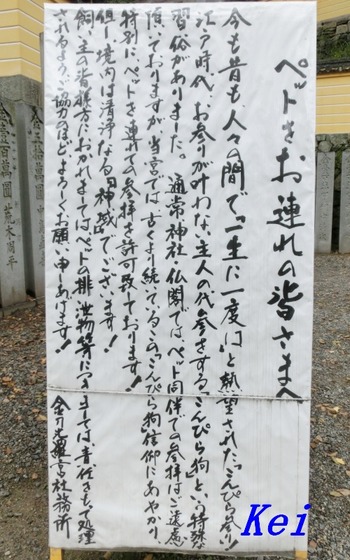 ペットをお連れの皆さまへ
今も昔も、人々の間で「一生に一度は」と熱望された「こんぴら参り」
江戸時代、お参りが叶わない主人の代参をする「こんぴら狗」という特殊な
習俗がありました。通常神社仏閣ではペット同伴での参拝はご遠慮
頂いておりますが、当宮では古くより続いているこの「こんぴら狗信仰」にあやかり、
特別にペットを連れての参拝を許可致しております!
但し境内は清浄なる「神域」でございます!
飼い主の皆様方におかれましてはペットの排泄物等につきましては責任をもって処理
されるよう、ご協力のほどよろしくお願い申しあげます!
金刀比羅宮社務所
金壱百萬圓 荒木周平
Kei